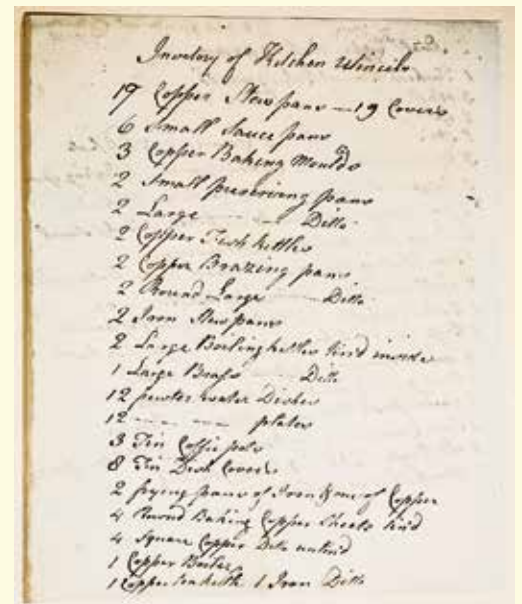 Inventory of Kitchen Utincils
19 Copper Stew pans — 19 Covers
6 Small Sauce pans
3 Copper Baking Moulds
2 Small preserving pans
2 Large — — Ditto
2 Copper Fish kettles
2 Copper Brazing pans
2 Round Large — Ditto
2 Iron Stew pans
2 Large Boiling kettles tin'd inside
1 Large Brass — Ditto
12 pewter water Dishes
12 — — — plates
3 Tin Coffie pots
8 Tin Dish Covers
2 frying pans of Iron & one of Copper
4 Round Baking Copper Sheets tin'd
4 Square Copper Ditto untin'd
1 Copper Boiler
1 Copper teakettle 1 Iron Ditto